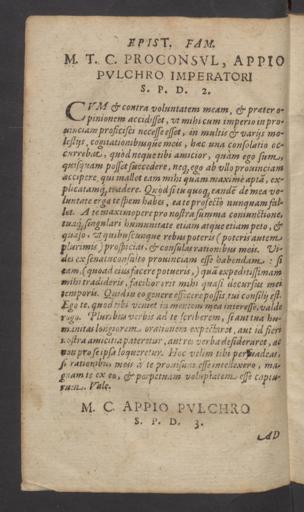 EPIST. FAM.
M. T. C. PROCONSVL, APPIO
PVLCHRO IMPERATORI
S. P. D. 2.
CVM & contra voluntatem meam, & præter o-
pinionem accidisset, vt mihi cum imperio in pro-
uinciam proficisci necesse esset, in multis & varijs mo-
lestijs, cogitationibusque meis, hæc vna consolatio oc-
currebat, quod neque tibi amicior, quàm ego sum,
quisquam posset succedere, neq, ego ab vllo prouinciam
accipere, qui mallet eam mihi quàm maximè aptā, ex-
plicatamq, tradere. Quòd si tu quoq, eandē de mea vo-
luntate erga te spem habes, ea te profectò nunquam fal-
let. A te maximopere pro nostra summa coniunctione,
tuaq, singulari humanitate etiam atque etiam peto, &
quæso, vt quibuscunque rebus poteris (poteris autem
plurimis) prospicias, & consulas rationibus meis. Vi-
des ex senatusconsulto prouinciam esse habendam: si
eam, (quoad eius facere potueris,) quā expeditissimam
mihi tradideris, facilior erit mihi quasi decursus mei
temporis. Quid in eo genere efficere possis, tui consilij est.
Ego te, quod tibi veniet in mentem mea interesse, valde
rogo. Pluribus verbis ad te scriberem, si aut tua hu-
manitas longiorem orationem expectaret, aut id fieri
nostra amicitia pateretur, aut res verba desideraret, ac
non pro se ipsa loqueretur. Hoc velim tibi persuadeas,
si rationibus meis à te prouisum esse intellexero, ma-
gnam te ex eo, & perpetuam voluptatem esse captu-
rum. Vale.
M. C. APPIO PVLCHRO
S. P. D. 3.
AD